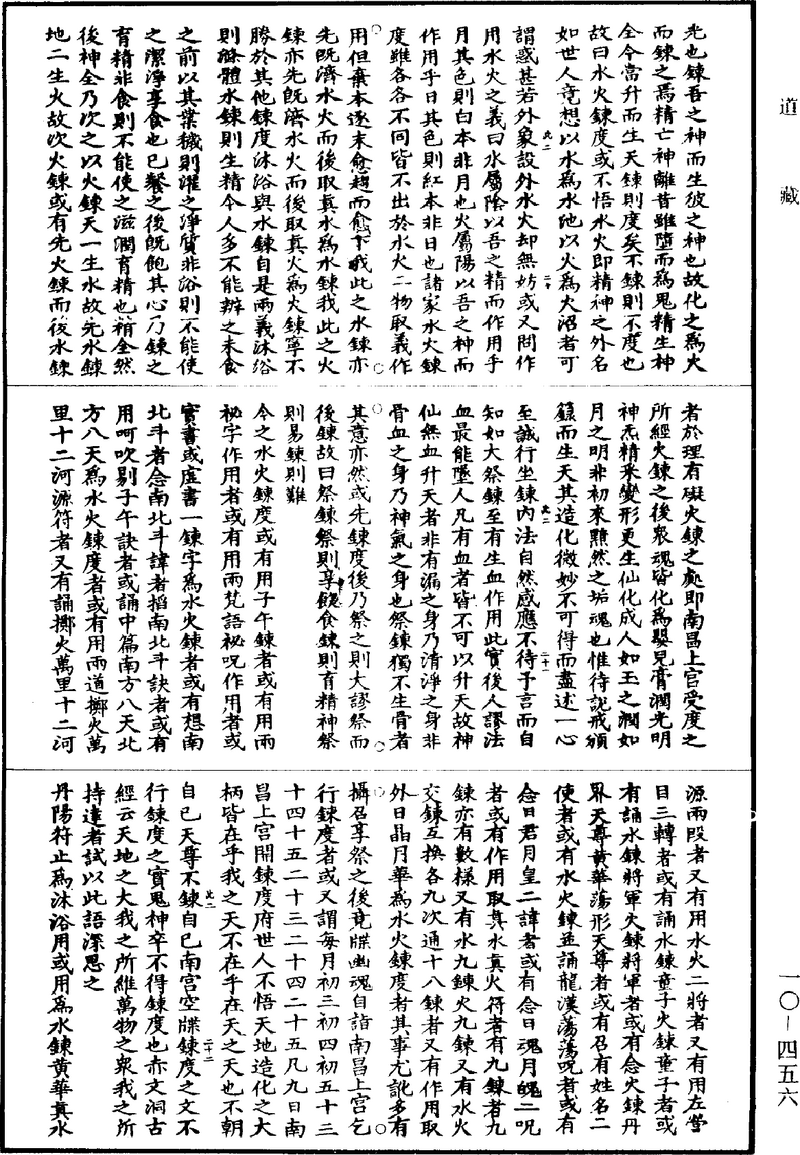 道藏
先也鍊吾之神而生彼之神也故化之爲火
而鍊之爲精亡神離昔雖墮而爲鬼精生神
全今當升而生天鍊則度矣不鍊則不度也
故曰水火鍊度或不悟水火即精神之外名
如世人竟想以水爲水池以火爲火沼者可
謂惑甚若外象設外水火却無妨或又問作
用水火之義曰水屬陰以吾之精而作用乎
月其色則白本非月也火屬陽以吾之神而
作用乎日其色則紅本非日也諸家水火鍊
度雖各各不同皆不出於水火二物取義作
用但棄本逐末愈趨而愈下我此之水鍊亦
先既濟水火而後取真水爲水鍊我此之火
鍊亦先既濟水火而後取真火爲火鍊寧不
勝於其他鍊度沐浴與水鍊自是兩義沐浴
則滌體水鍊則生精今人多不能辨之未食
之前以其業穢則濯之淨質非浴則不能使
之潔淨享食也已餐之後既飽其心乃鍊之
育精非食則不能使之滋潤育精也稍全然
後神全乃次之以火鍊天一生水故先水鍊
地二生火故次火鍊或有先火鍊而後水鍊
者於理有礙火鍊之處即南昌上宮受度之
所經火鍊之後衆魂皆化爲嬰兒膏潤光明
神炁精采變形更生仙化成人如玉之潤如
月之明非初來黯然之垢魂也惟待說戒頒
籙而生天其造化微妙不可得而盡述一心
至誠行坐鍊內法自然感應不待予言而自
知如大祭鍊至有生血作用此實後人謬法
血最能墜人凡有血者皆不可以升天故神
仙無血升天者非有漏之身乃清淨之身非
骨血之身乃神氣之身也祭鍊獨不生骨者
其意亦然或先鍊度後乃祭之則大謬祭而
後鍊故曰祭鍊祭則享餽食鍊則育精神祭
則易鍊則難
今之水火鍊度或有用子午鍊者或有用兩
祕字作用者或有用兩梵語祕呪作用者或
實書或虛書一鍊字爲水火鍊者或有想南
北斗者念南北斗諱者掐南北斗訣者或有
用呵吹剔子午訣者或誦中篇南方八天北
方八天爲水火鍊度者或有用兩道擲火萬
里十二河源符者又有誦擲火萬里十二河
源兩段者又有用水火二將者又有用左營
目三轉者或有誦水鍊童子火鍊童子者或
有誦水鍊將軍火鍊將軍者或有念火鍊丹
界天尊黃華蕩形天尊者或有召有姓名二
使者或有水火鍊並誦龍漢蕩蕩呪者或有
念日君月皇二諱者或有念日魂月魄二呪
者或有作用取真水真火符者有九鍊者九
鍊亦有數樣又有水九鍊火九鍊又有水火
交鍊互換各九次通十八鍊者又有作用取
外日晶月華爲水火鍊度者其事尤訛多有
攝召享祭之後竟牒幽魂自詣南昌上宮乞
行鍊度者或又謂每月初三初四初五十三
十四十五二十三二十四二十五凡九日南
昌上宮開鍊度府世人不悟天地造化之大
柄皆在乎我之天不在乎在天之天也不朝
自己天尊不鍊自己南宮空牒鍊度之文不
行鍊度之實鬼神卒不得鍊度也赤文洞古
經云天地之大我之所維萬物之衆我之所
持達者試以此語深思之
丹陽符止爲沐浴用或用爲水鍊黃華真水
一〇－四五六